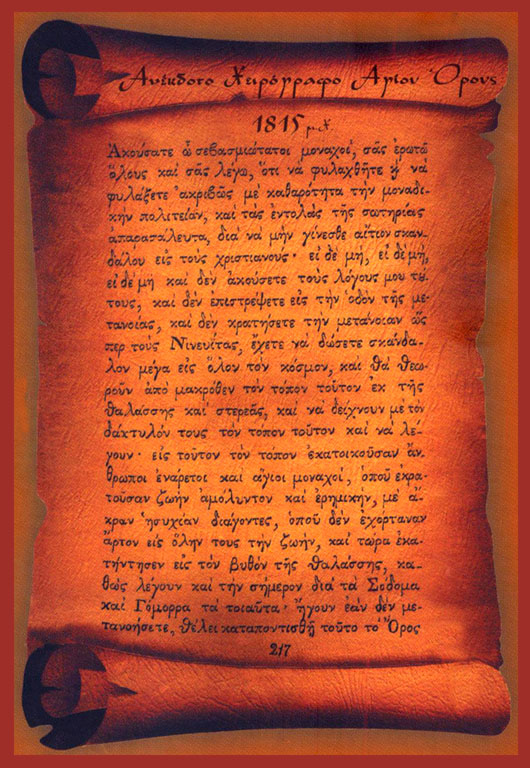 Ανέκδοτο Χειρόγραφο Αγίου Όρους
1815 μ.Χ.
Ἀκούσατε ὦ σεβασμιώτατοι μοναχοί, σᾶς ἐρωτῶ
ὅλους καὶ σᾶς λέγω, ὅτι νὰ φυλαχθῆτε ϗ νὰ
φυλάξετε ἀκριβῶς μὲ καθαρότητα τὴν μοναδι-
κὴν πολιτείαν, καὶ τὰς ἐντολὰς τῆς σωτηρίας
απαρασάλευτα, διὰ νὰ μὴν γίνεσθε αἴτιον σκαν-
δάλου εἰς τοὺς χριστιανους· εἰ δὲ μή, εἰ δὲ μή,
εἰ δὲ μὴ καὶ δὲν ἀκούσετε τοὺς λόγους μου τȣ-
τους, καὶ δὲν ἐπιστρέψετε εἰς τὴν ὁδὸν τῆς με-
τανοίας, καὶ δὲν κρατήσετε τὴν μετάνοιαν ὥς
περ τοὺς Νινευίτας, ἔχετε νὰ δώσετε σκάνδα-
λον μέγα εἰς ὅλον τὸν κόσμον, καὶ θὰ θεω-
ροῦν ἀπὸ μακρόθεν τὸν τόπον τοῦτον ἐκ τῆς
θαλάσσης καὶ στερεᾶς, καὶ νὰ δείχνουν μὲ τὸν
δάκτυλόν τους τὸν τόπον τοῦτον καὶ νὰ λέ-
γουν· εἰς τοῦτον τὸν τόπον ἐκατοικοῦσαν ἄν-
θρωποι ἐνάρετοι καὶ ἅγιοι μοναχοί, ὁποῦ ἐκρα-
τοῦσαν ζωὴν ἀμόλυντον καὶ ἐρημικήν, μὲ ἄ-
κραν ἡσυχίαν διάγοντες, ὁποῦ δὲν ἐχόρταναν
ἄρτον εἰς ὅλην τους τὴν ζωήν, καὶ τώρα ἐκα-
τήντησεν εἰς τὸν βυθὸν τῆς θαλάσσης, κα-
θὼς λέγουν καὶ τὴν σήμερον διὰ τὰ Σόδομα
καὶ Γόμορρα τὰ τοιαῦτα· ἤγουν ἐὰν δὲν με-
τανοήσετε, θέλει καταποντισθῆ τοῦτο τὸ Ὄρος
217